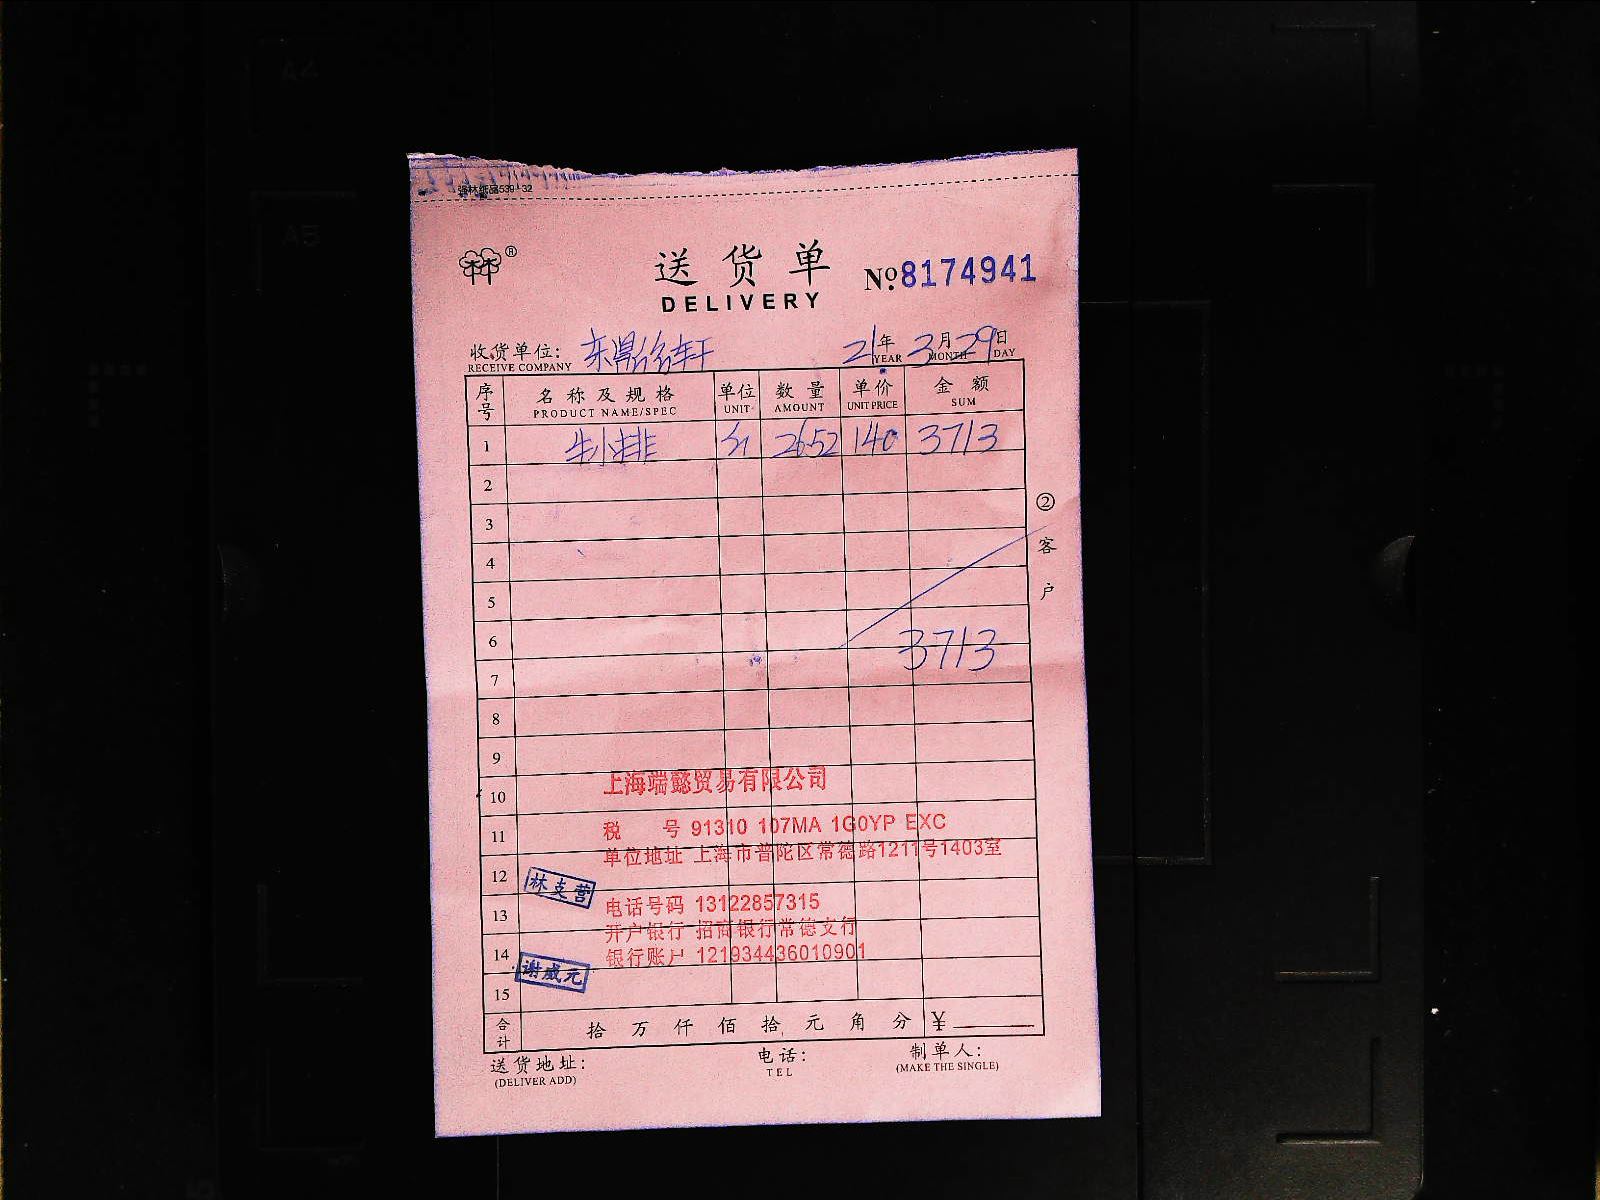 强林纸品539-32
送货单 №8174941
DELIVERY
收货单位: 东鼎
21年 3月 29日
RECEIVE COMPANY YEAR MONTH DAY
序号 名称及规格 单位 数量 单价 金额
PRODUCT NAME/SPEC UNIT AMOUNT UNIT PRICE SUM
1 牛小排 斤 26.52 140 3713
2
3
4
5
6
3713
7
8
9
10
11
12
13
14
15
② 客户
上海端懿贸易有限公司
税 号 91310 107MA 1G0YP EXC
单位地址 上海市普陀区常德路1211号1403室
林支营
电话号码 13122857315
开户银行 招商银行常德支行
银行账户 121934436010901
谢威元
合计 拾 万 仟 佰 拾 元 角 分 ¥
送货地址: 电话: 制单人:
(DELIVER ADD) TEL (MAKE THE SINGLE)